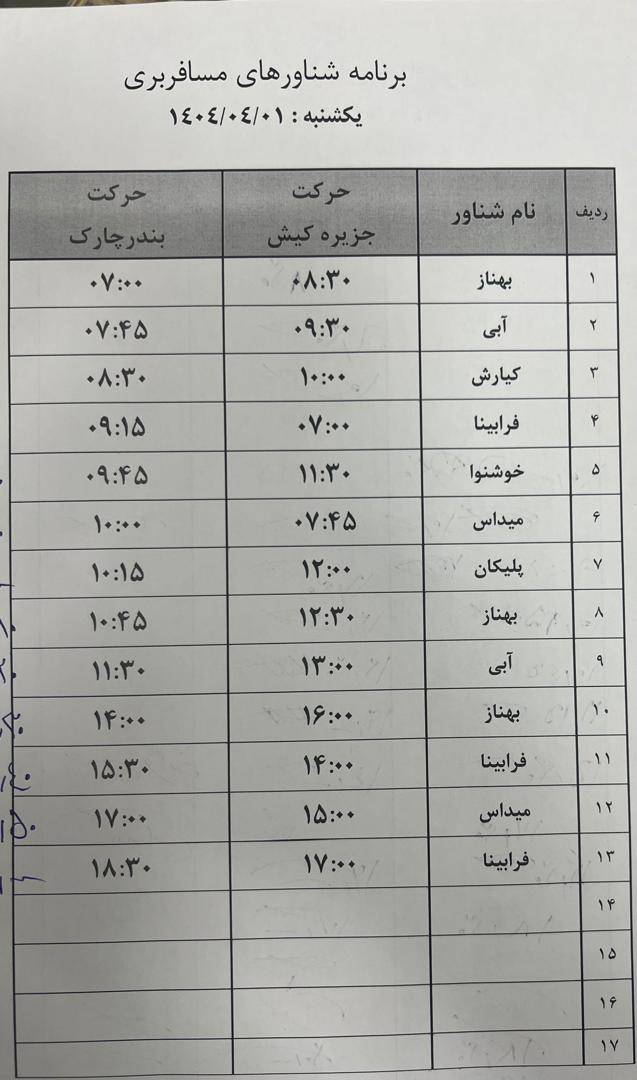 برنامه شناورهای مسافربری
یکشنبه : ۱۴۰۴/۰۴/۰۱
ردیف نام شناور حرکت جزیره کیش حرکت بندرچارک
۱ بهناز ۰۸:۳۰ ۰۷:۰۰
۲ آبی ۰۹:۳۰ ۰۷:۴۵
۳ کیارش ۱۰:۰۰ ۰۸:۳۰
۴ فرابینا ۰۷:۰۰ ۰۹:۱۵
۵ خوشنوا ۱۱:۳۰ ۰۹:۴۵
۶ میداس ۰۷:۴۵ ۱۰:۰۰
۷ پلیکان ۱۲:۰۰ ۱۰:۱۵
۸ بهناز ۱۲:۳۰ ۱۰:۴۵
۹ آبی ۱۳:۰۰ ۱۱:۳۰
۱۰ بهناز ۱۶:۰۰ ۱۴:۰۰
۱۱ فرابینا ۱۴:۰۰ ۱۵:۳۰
۱۲ میداس ۱۵:۰۰ ۱۷:۰۰
۱۳ فرابینا ۱۷:۰۰ ۱۸:۳۰
۱۴
۱۵
۱۶
۱۷